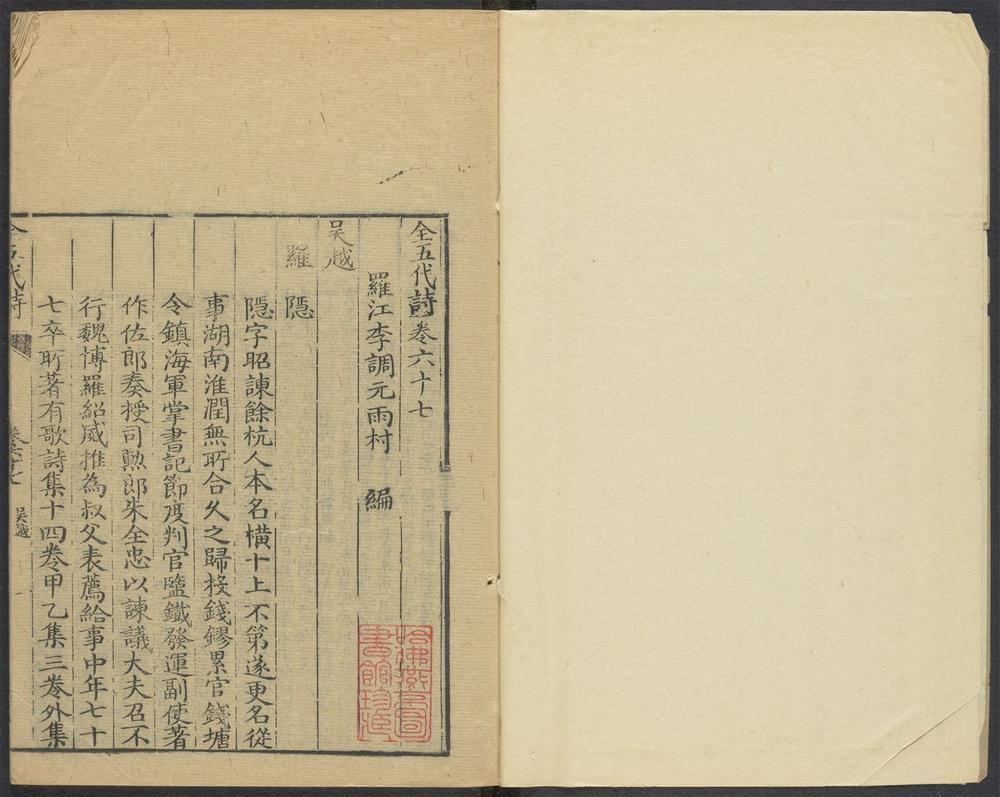 全五代詩卷六十七
羅江李調元雨村 編
吳越
羅隱
隱字昭諫餘杭人本名橫十上不第遂更名從
事湖南淮潤無所合久之歸投錢鏐累官錢塘
令鎮海軍掌書記節度判官鹽鐵發運副使著
作佐郎奏授司勳郎朱全忠以諫議大夫召不
行魏博羅紹威推為叔父表薦給事中年七十
七卒所著有歌詩集十四卷甲乙集三卷外集
全五代詩 卷六十七 吳越 一
哈佛燕京圖書館珍藏